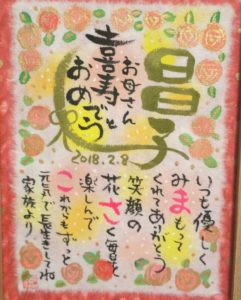 昌子
お母さん
喜寿
おめでとう
2018.2.8
いつも優しく
みまもって
くれてありがとう
笑顔の
花さく毎日を
楽しんで
これからもずっと
元気で長生きしてね
家族より